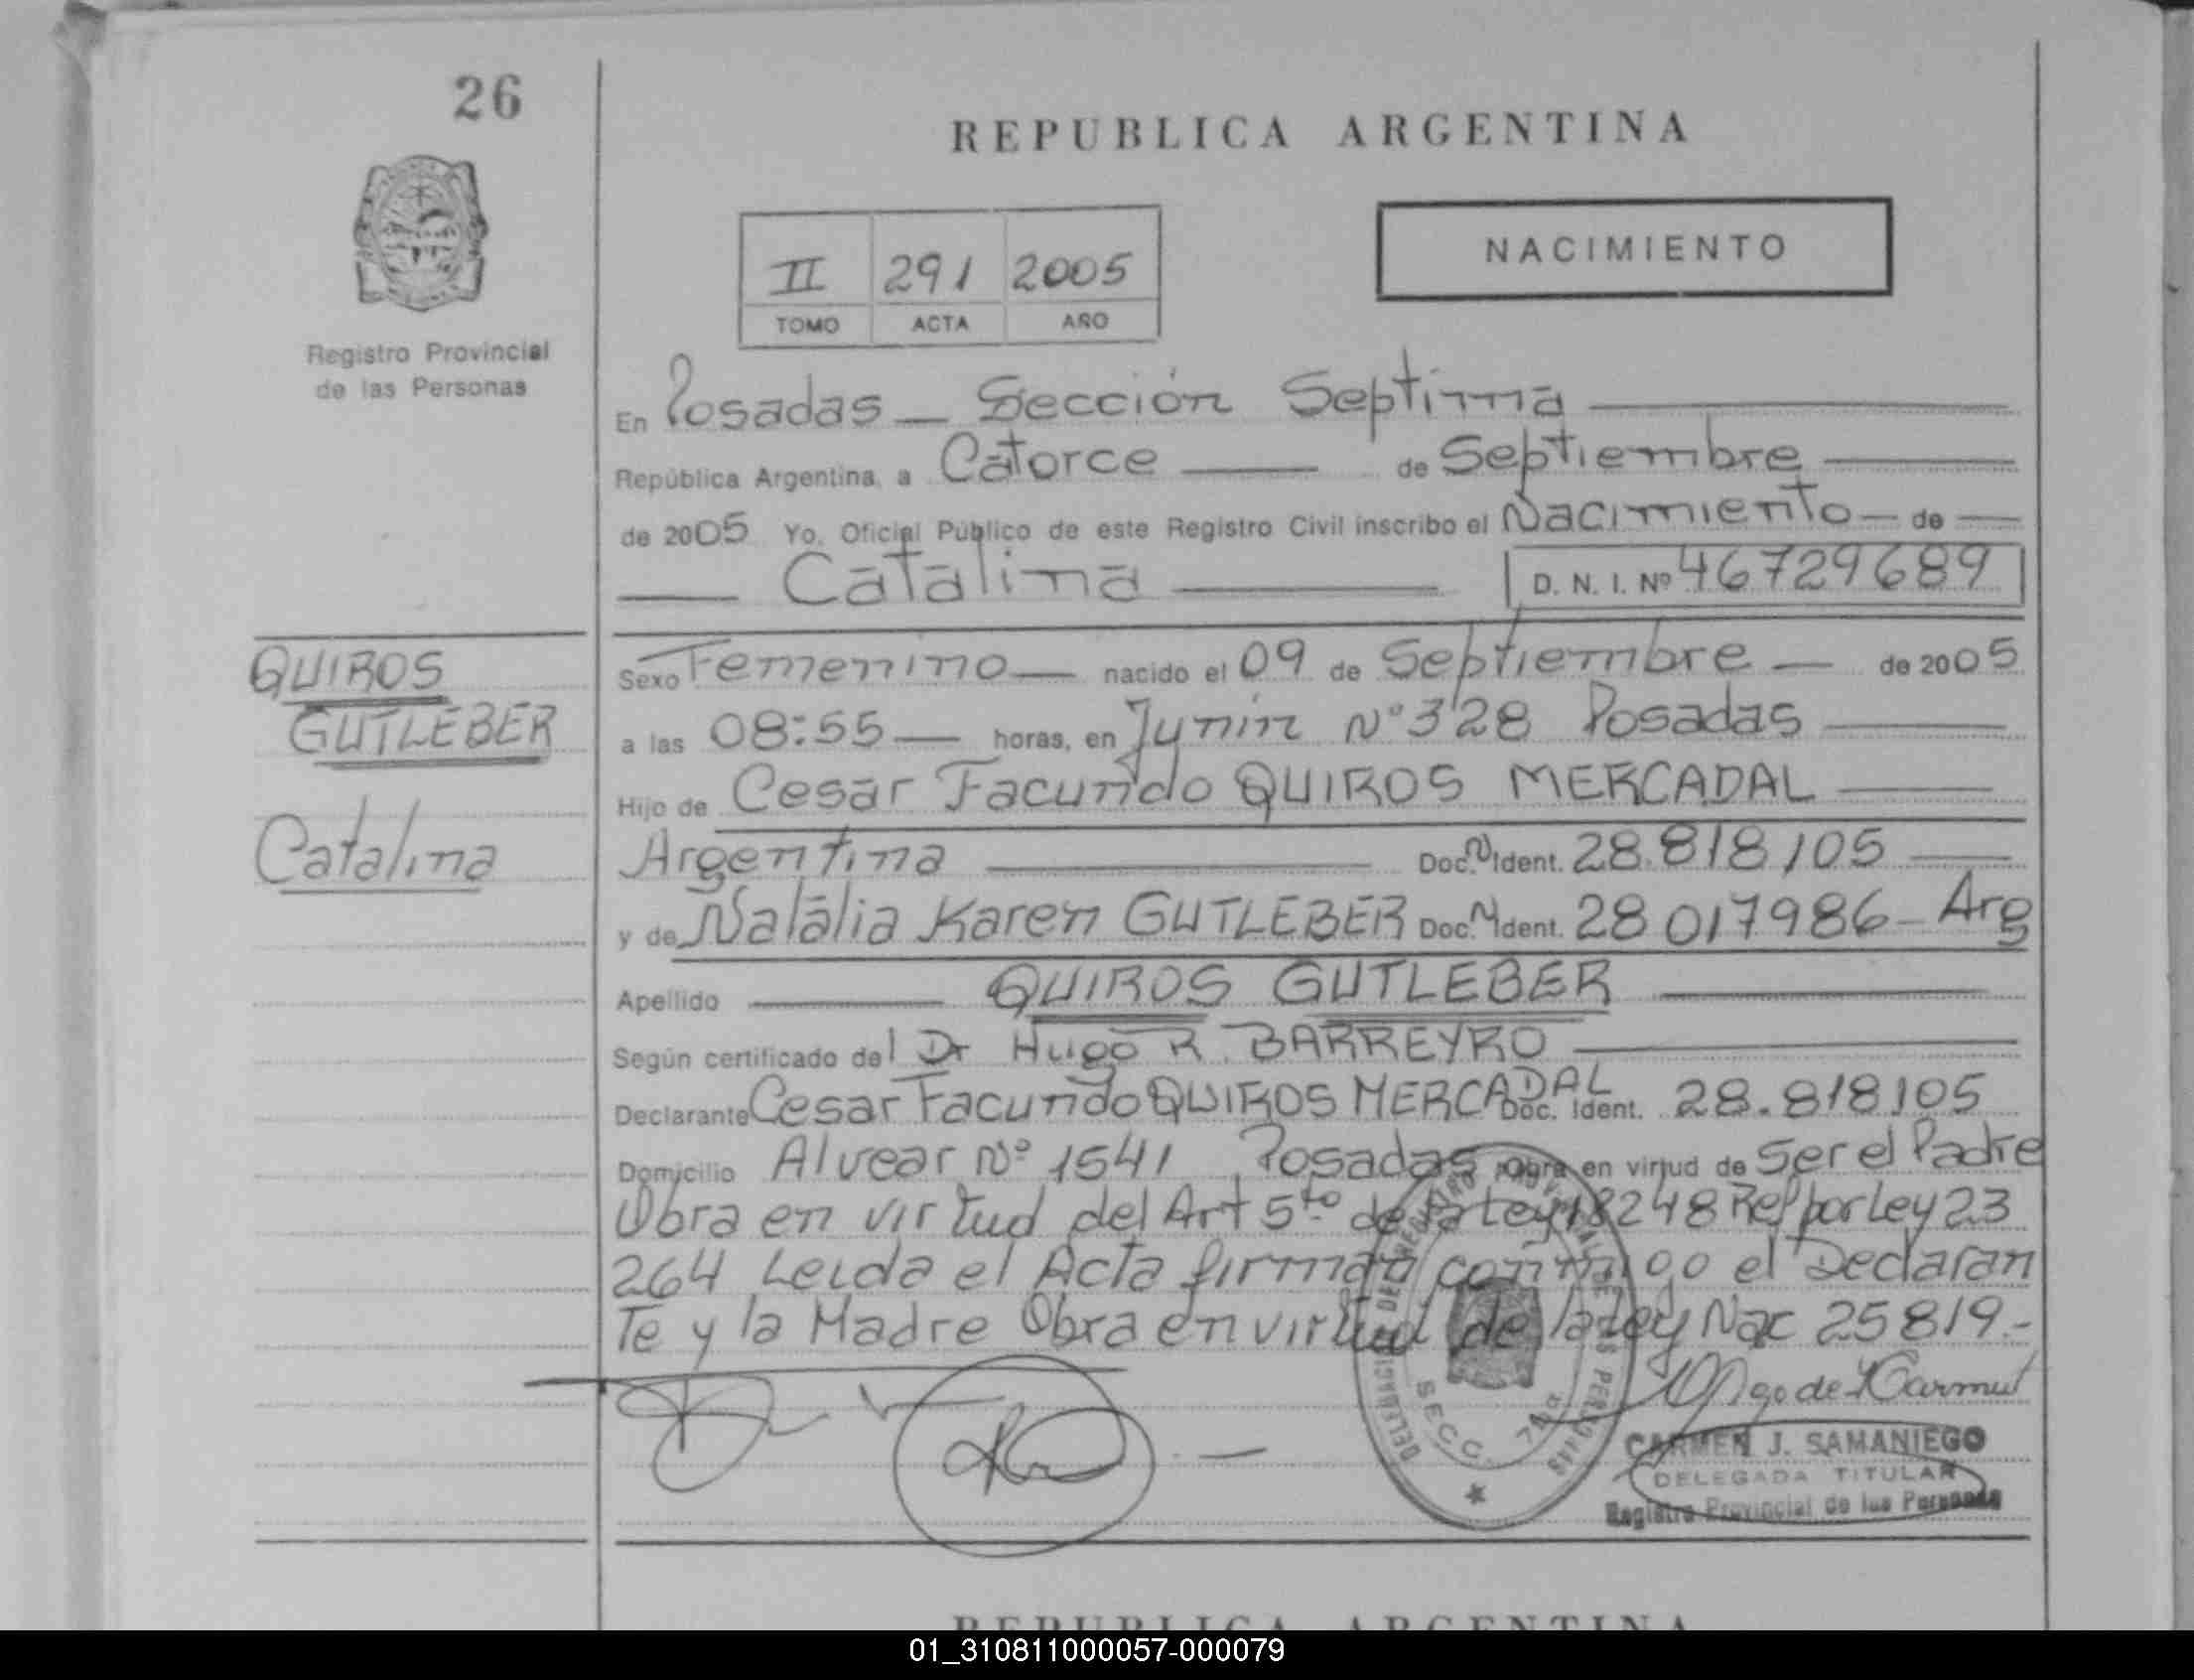 26
REPUBLICA ARGENTINA
NACIMIENTO
II 291 2005
TOMO ACTA AÑO
Registro Provincial
de las Personas
En Posadas — Sección Septima
República Argentina, a Catorce — de Septiembre
de 2005 Yo, Oficial Público de este Registro Civil inscribo el Nacimiento — de —
— Catalina — D. N. I. Nº 46729689
QUIROS
GUTLEBER
Catalina
Sexo Femenino — nacido el 09 de Septiembre — de 2005
a las 08:55 — horas, en Junín Nº 328 Posadas
Hijo de Cesar Facundo QUIROS MERCADAL
Argentina — Doc. N Ident. 28.818105
y de Natalia Karen GUTLEBER Doc. N Ident. 28017986 - Arg
Apellido — QUIROS GUTLEBER
Según certificado del Dr Hugo R. BARREYRO
Declarante Cesar Facundo QUIROS MERCADAL Doc. Ident. 28.818105
Domicilio Alvear Nº 1541 Posadas Obra en virtud de Ser el Padre
Obra en virtud del Art 5to de la Ley 18248 Ref por Ley 23
264 Leida el Acta firman conmigo el Declaran
Te y la Madre Obra en virtud de la Ley Nac 25819.-
SECC. 7ma
CARMEN J. SAMANIEGO
DELEGADA TITULAR
Registro Provincial de las Personas
REPUBLICA ARGENTINA
01_310811000057-000079